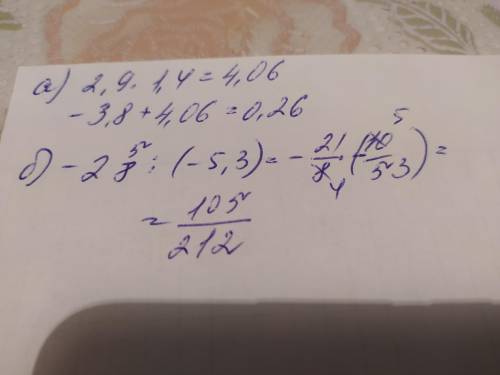 а) 2,9 · 1,4 = 4,06
-3,8 + 4,06 = 0,26
б) -2 5/8 : (-5,3) = -21/8 4 · (-10/53) 5 =
= 105/212